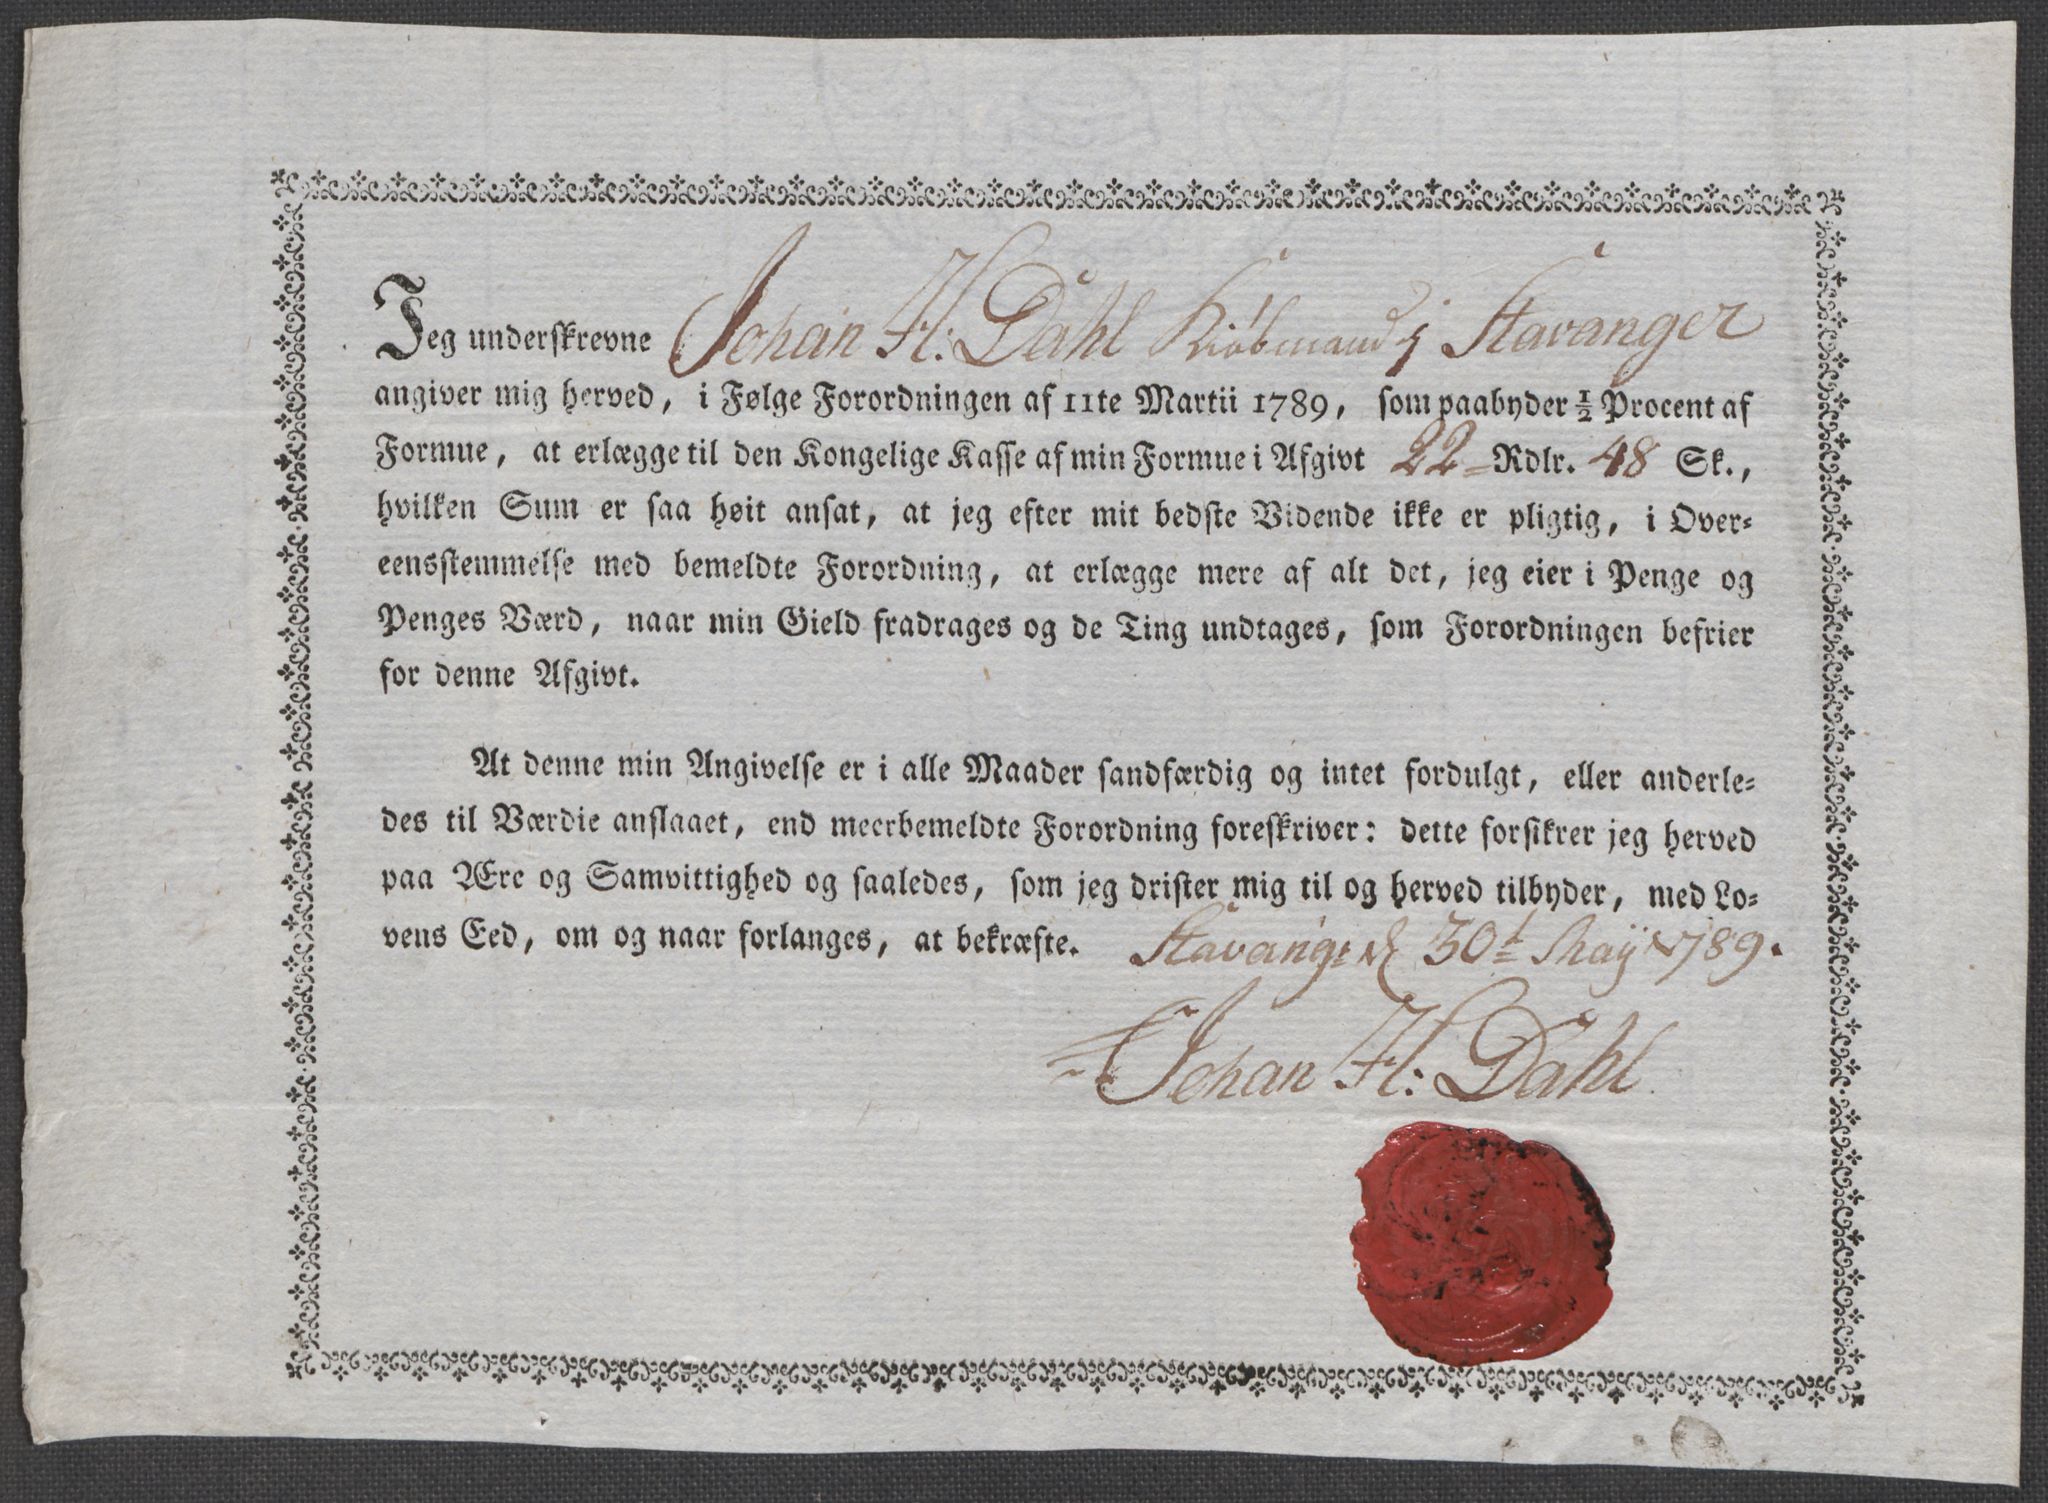 Jeg underskrevne Johan H: Dahl Kiøbmand i Stavanger
angiver mig herved, i Følge Forordningen af 11te Martii 1789, som paabyder ½ Procent af
Formue, at erlægge til den Kongelige Kasse af min Formue i Afgivt 22 Rdlr. 48 Sk.,
hvilken Sum er saa høit ansat, at jeg efter mit bedste Vidende ikke er pligtig, i Over-
eensstemmelse med bemeldte Forordning, at erlægge mere af alt det, jeg eier i Penge og
Penges Værd, naar min Gield fradrages og de Ting undtages, som Forordningen befrier
for denne Afgivt.
At denne min Angivelse er i alle Maader sandfærdig og intet fordulgt, eller anderle-
des til Værdie anslaaet, end meerbemeldte Forordning foreskriver: dette forsikrer jeg herved
paa Ære og Samvittighed og saaledes, som jeg drister mig til og herved tilbyder, med Lo-
vens Eed, om og naar forlanges, at bekræfte. Stavang: d 30t Maÿ 1789.
Johan H: Dahl